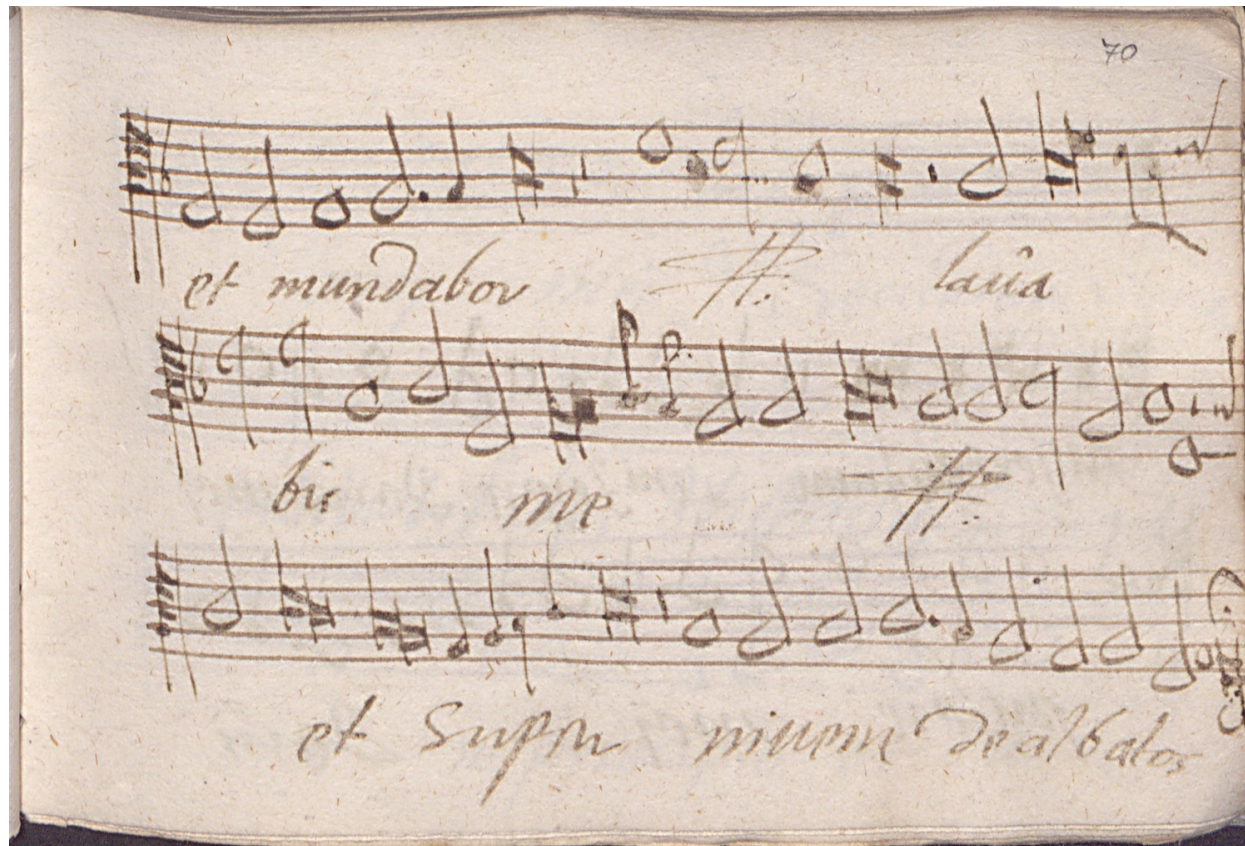 70
et mundabor laua
bis me
et super niuem dealbabor